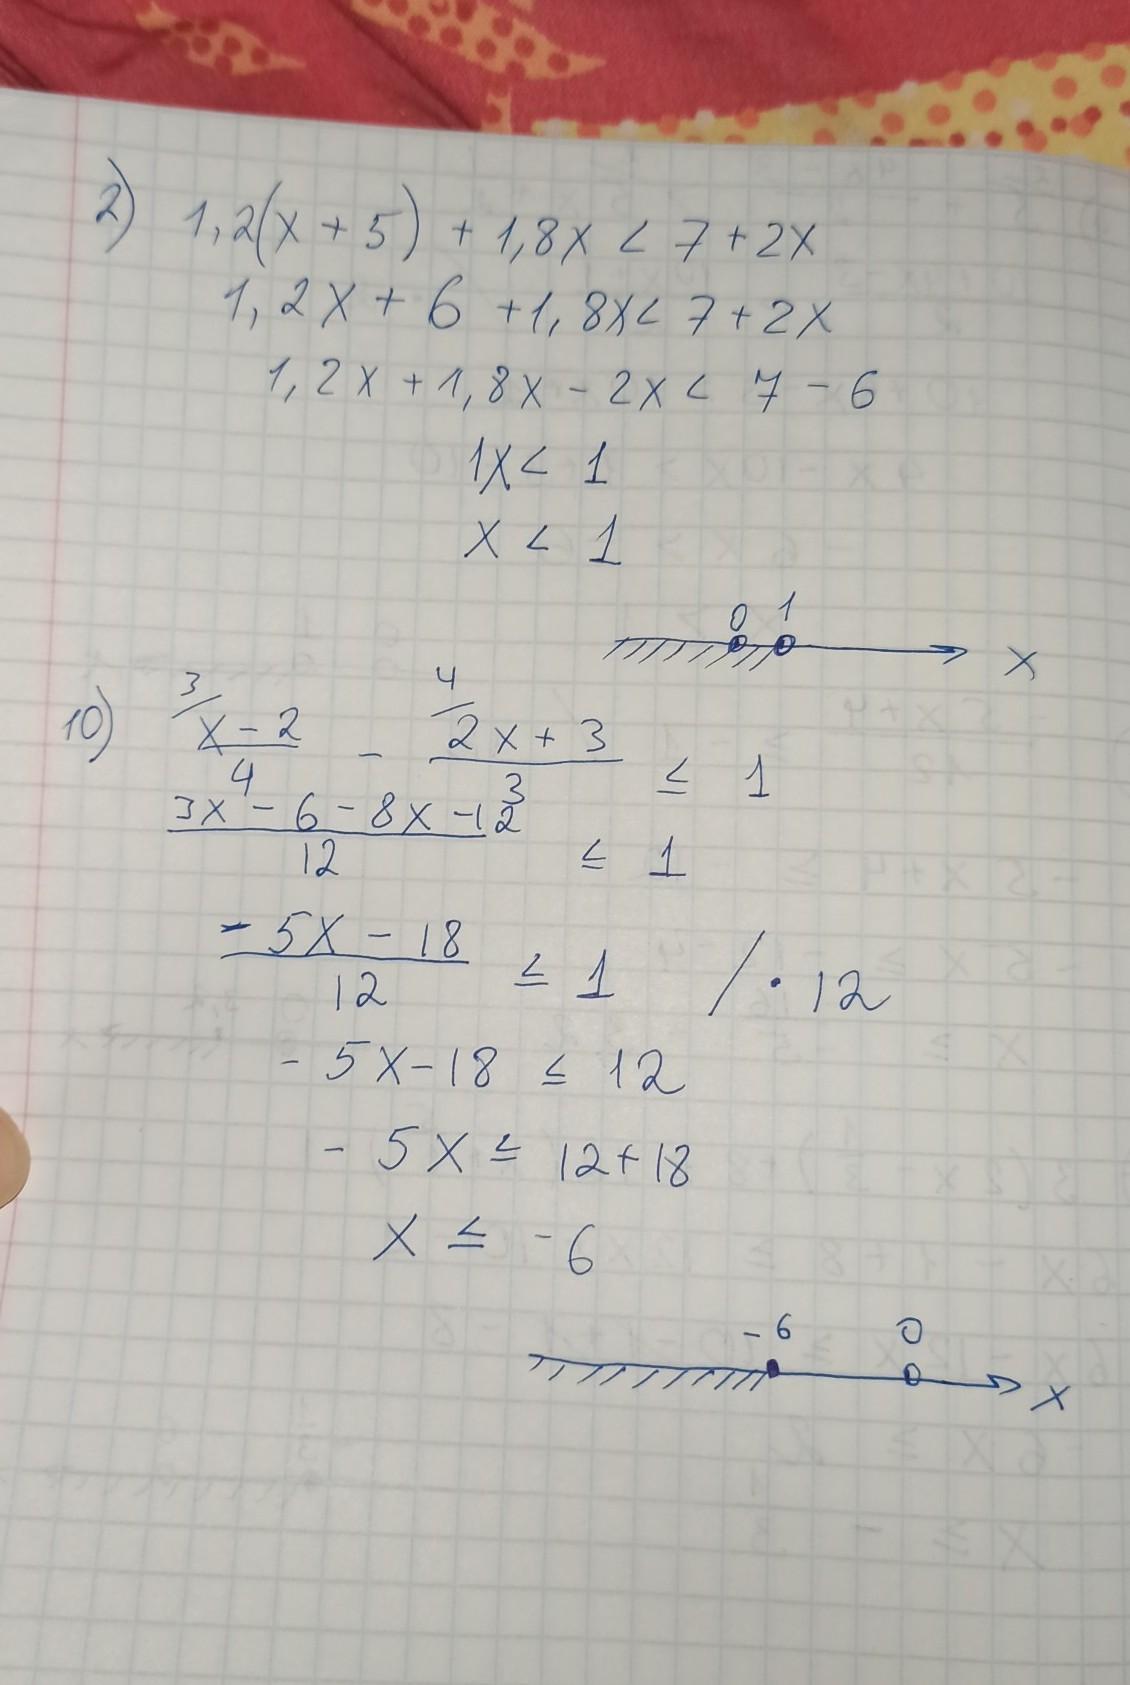 2) 1,2(x + 5) + 1,8x < 7 + 2x
1,2x + 6 + 1,8x < 7 + 2x
1,2x + 1,8x - 2x < 7 - 6
1x < 1
x < 1
0 1
x
3/ 4/
10) x - 2 / 4 - 2x + 3 / 3 ≤ 1
3x - 6 - 8x - 12 / 12 ≤ 1
- 5x - 18 / 12 ≤ 1 / · 12
- 5x - 18 ≤ 12
- 5x ≤ 12 + 18
x ≤ - 6
- 6 0
x